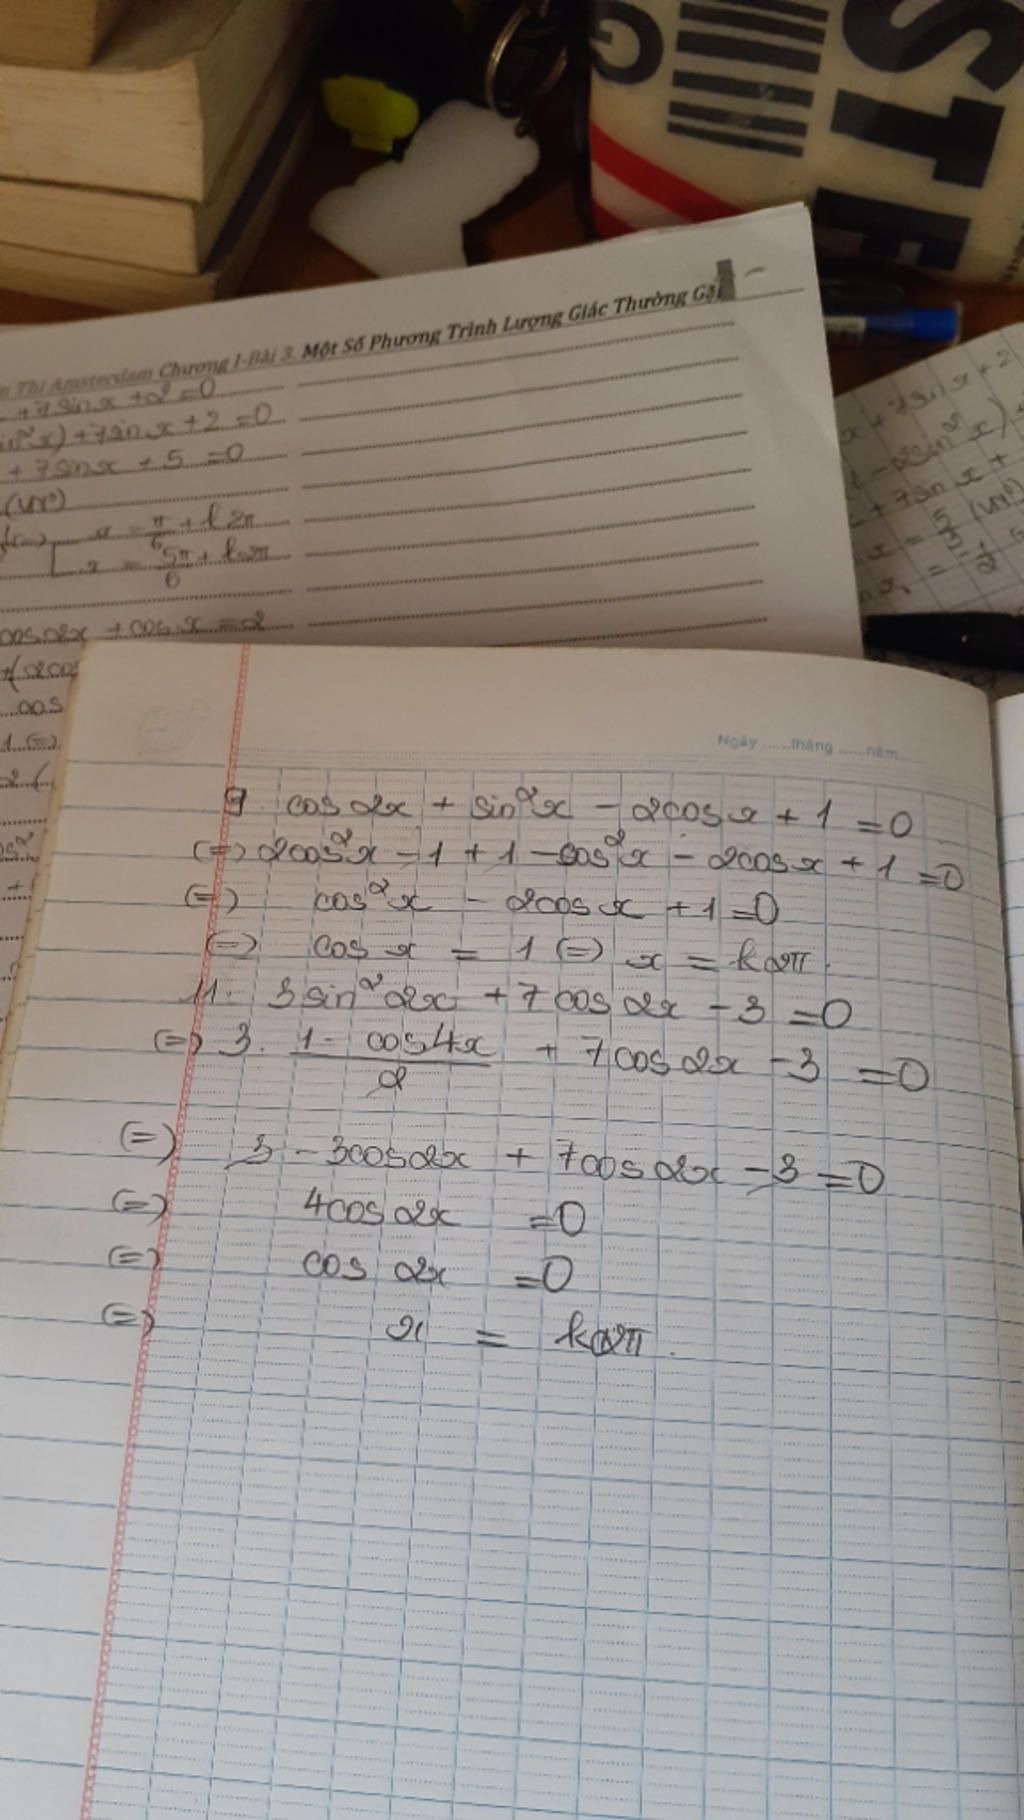 STE
G
n Thi Amsterdam Chương I-Bài 3. Một Số Phương Trình Lượng Giác Thường Gặ
+ 7sinx + 2 = 0
in²x) + 7sinx + 2 = 0
+ 7sinx + 5 = 0
(VN°)
x = π/6 + k2π
x = 5π/6 + k2π
cos2x + cosx = 2
+(2cos
cos
1 (=)
x + 7sinx + 2
- 2sin²x)
+ 7sinx +
x = 5/3 (VN°)
= 1/2
Ngày ......tháng ......năm......
9. cos2x + sin²x - 2cosx + 1 = 0
(=) 2cos²x - 1 + 1 - cos²x - 2cosx + 1 = 0
(=) cos²x - 2cosx + 1 = 0
(=) cosx = 1 (=) x = k2π.
11. 3sin²2x + 7cos2x - 3 = 0
(=) 3. (1 - cos4x)/2 + 7cos2x - 3 = 0
(=) 3 - 3cos2x + 7cos2x - 3 = 0
(=) 4cos2x = 0
(=) cos2x = 0
(=) x = k2π.